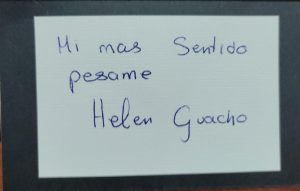 Mi mas Sentido
pesame
Helen Guacho